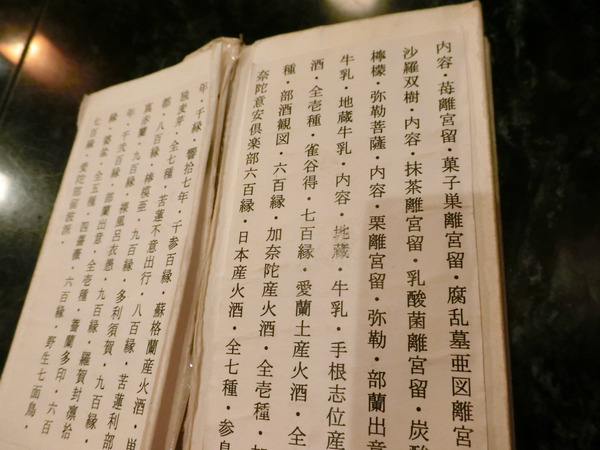 内容・苺離宮留・菓子巣離宮留・腐乱墓亜図離宮
沙羅双樹・内容・抹茶離宮留・乳酸菌離宮留・炭酸
檸檬・弥勒菩薩・内容・栗離宮留・弥勒・部蘭出意
牛乳・地蔵牛乳・内容・地蔵・牛乳・手根志位産
酒・全壱種・雀谷得・七百縁・愛蘭土産火酒・全
種・部酒観図・六百縁・加奈陀産火酒・全壱種・
奈陀意安倶楽部六百縁・日本産火酒・全七種・参鳥
年・千縁・響拾七年・千参百縁・蘇格蘭産火酒・単
独麦芽・全七種・苦蓮不意出行・八百縁・
都・八百縁・
真赤蘭・九百縁・裸風呂衣愚・九百縁・苦蓮利部
年・千弐百縁・部蘭出意・九百縁・多利須賀・九百縁・
縁・全五種・四薔薇・全壱種・羅賀封凛拾
七百縁・愛陀部留波振・六百縁・野生七面鳥・